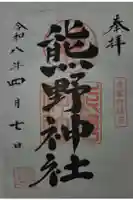 奉拝
熊野神社
令和八年四月七日